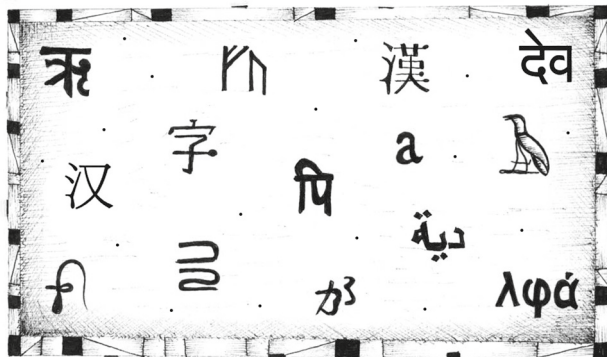 ऋ ᚠᚢ 漢 देव
字 a 𓄿
汉 पि
دية
λφά